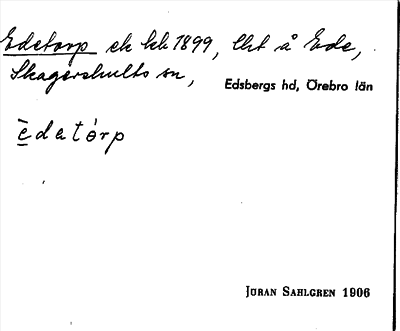 Edetorp ek kb 1899, lht å Ede,
Skagershults sn, Edsbergs hd, Örebro län
ēdetórp
JÖRAN SAHLGREN 1906